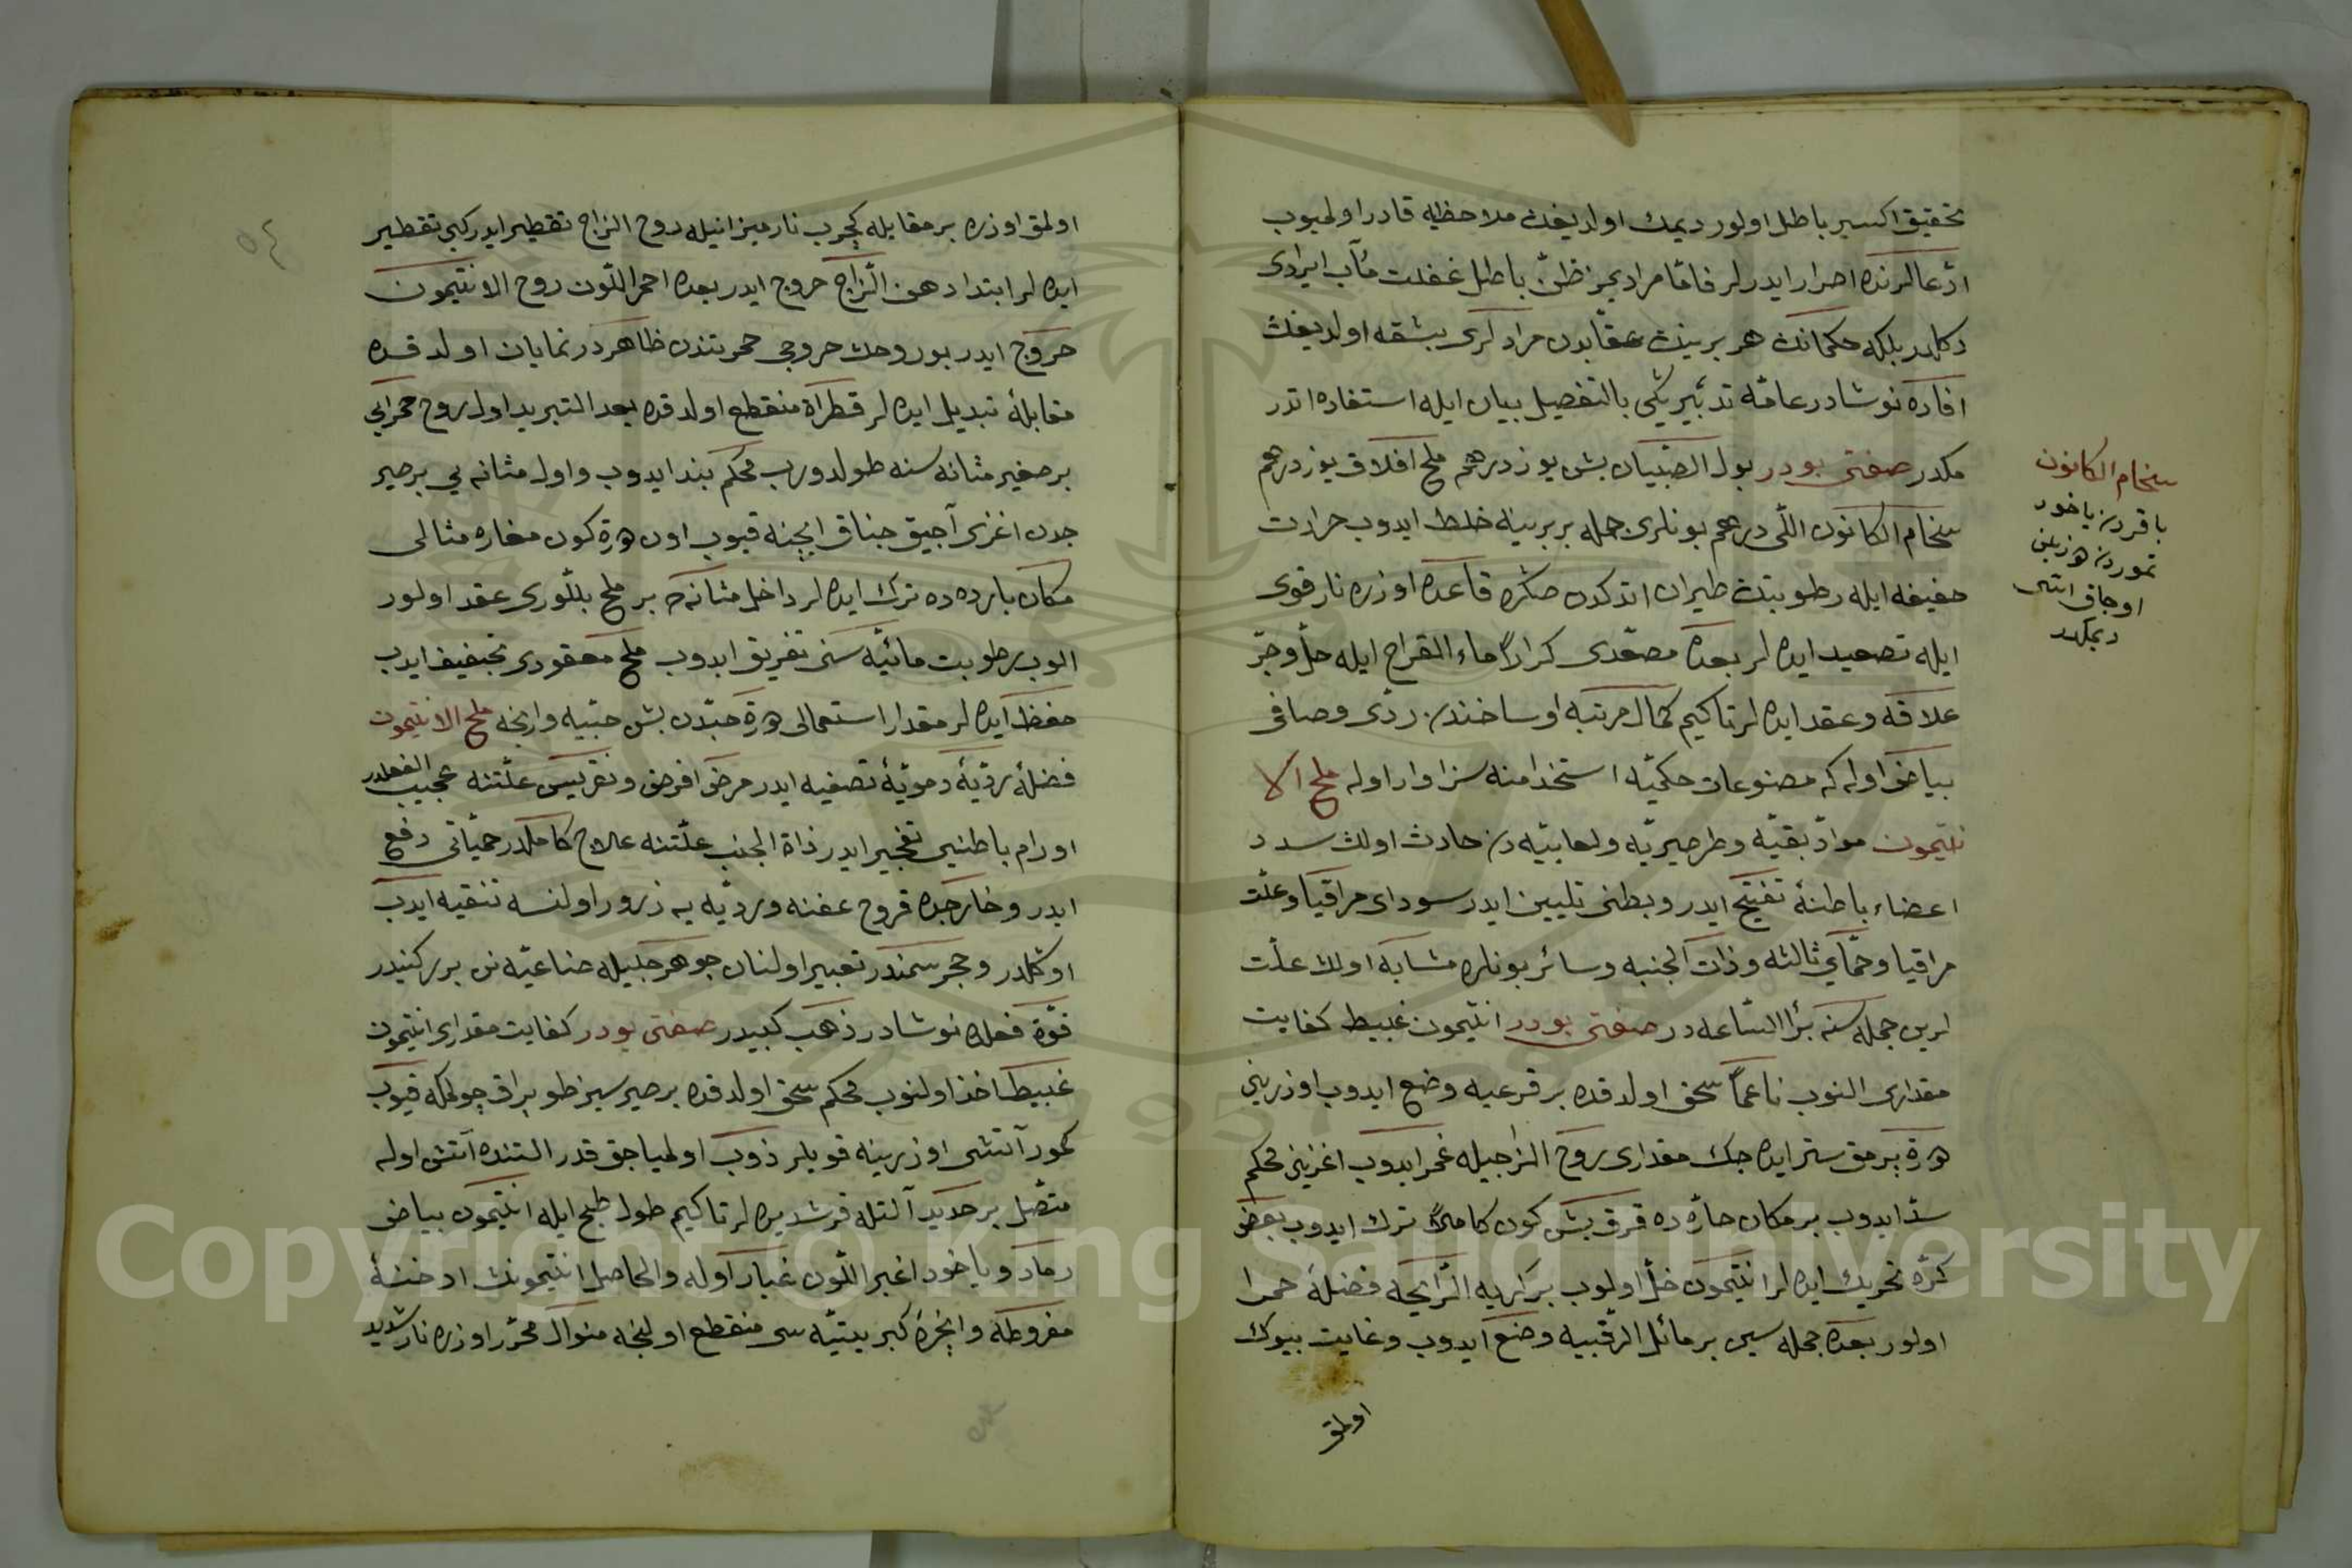 تحقيق اكسير باطل اولور ديمك اولديغن ملاحظه قادر اولميوب
ادعالرنده اصرار ايدرلر فامّا مراديمز ظنّ باطل غفلت مآب ايرادى
دكلدر بلكه حكمانك هر برينك عقابدن مرادلرى بشقه اولديغن
افاده نوشادر عامّه تدبيرينى بالتفصيل بيان ايله استفاده اتدر
مكدر صفتى بودر بول الصّبيان بش يوز درهم ملح افلاق يوز درهم
سخام الكانون اللّى درهم بونلرى جمله بربرينه خلط ايدوب حرارت
خفيفه ايله رطوبتدن طيران اتدكدن صكره قاعده اوزره نار قوى
ايله تصعيد ايده لر بعده مصعّدى كراراً ماء القراح ايله حلّ وجرّ
علاقه وعقد ايده لر تاكيم كمال مرتبه اوساخندن ردّى وصافى
بياض اوله كه مصنوعات حكميّه استخدامنه سزاوار اوله ملح الا
نتيمون موادّ بقيّه وطرطيريّه ولعابيّه دن حادث اولان سدد
اعضاء باطنهٔ تفتيح ايدر وبطنى تليين ايدر سوداى مراقيا وعلّت
مراقيا وحمّاي ثالثه وذات الجنبه وسائر بونلره مشابه اولان علّت
لرين جمله سنه برأ السّاعه در صفتى بودر انتيمون غبيط كفايت
مقدارى النوب ناعماً سحق اولدقده بر قرعيه وضع ايدوب اوزرينى
درت برمق ستر ايده جك مقدارى روح الزاجيله غمر ايدوب اغزينى محكم
سدّ ايدوب بر مكان حارّه ده قرق بش كون كاملاً ترك ايدوب بعض
كرّه تحريك ايده لر انتيمون حلّ اولوب بر كريه الرّايحه فضلهٔ حمرا
اولور بعده جمله سين بر مائل الرقبيه وضع ايدوب وغايت بيوك
اولمق
سخام الكانون
باقردن ياخود
تموردن دوزيلن
اوجاق ايسى
ديمكدر
٥٤
اولمق اوزره بر مقابله كچورب نار ميزانيله روح الزاج تقطير ايدر كبى تقطير
ايده لر ابتدا دهن الزّاج خروج ايدر بعده احمر اللّون روح الانتيمون
خروج ايدر بو روحك خروجى حمرتندن ظاهردر نمايان اولدقده
مقابلهٔ تبديل ايده لر قطراة منقطع اولدقده بعد التبريد اول روح حمرايى
بر صغير مثانه سنه طولدورب محكم بند ايدوب واول مثانه يى بر صير
جه دن اغزى آجيق چناق ايچنه قيوب اون درت كون مغاره مثالى
مكان بارده ده ترك ايده لر داخل مثانه ده بر ملح بللّورى عقد اولور
الوب رطوبت مائيّه سنى تفريق ايدوب ملح معقودى تجفيف ايدب
حفظ ايده لر مقدار استعمالى درت حبّه دن بش حبّيه وارنجه ملح الانتيمون
فضلهٔ رديّهٔ دمويّهٔ تصفيه ايدر مرض افرنج ونقريس علّتنه عجيب الفعلدر
اورام باطنيى تفجير ايدر ذاة الجنب علّتنه علاج كاملدر حميّاتى دفع
ايدر وخارجده قروح عفنه ورديّه يه ذرور اولنسه تنقيه ايدب
اوكلدر وحجر سمندر تعبير اولنان جوهر جليله صناعيّه نن برركنيدر
قوّة فعلده نوشادر ذهب كبيدر صفتى بودر كفايت مقدارى انتيمون
غبيط اخذ اولنوب محكم سحق اولدقده بر صيرسيز طوپراق چولمكه قيوب
كمور آتشى اوزرينه قويلر ذوب اولمياجق قدر التنده آتش اوله
متّصل بر حديد آلتله قرشديره لر تاكيم طول طبخ ايله انتيمون بياض
رماد وياخود اغبر اللّون غبار اوله والحاصل انتيمونك ادخنهٔ
مفروطه وابخرهٔ كبريتيّه سى منقطع اولنجه منوال محرّر اوزره نار شديد
Copyright © King Saud University
1957